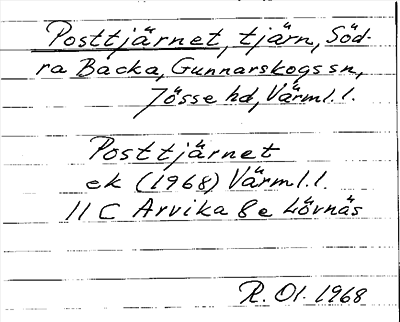 Posttjärnet, tjärn, Söd-
ra Backa, Gunnarskogs sn,
Jösse hd, Värml. l.
Posttjärnet
ek (1968) Värml. l.
11 C Arvika 8 e Lövnäs
R. Ol. 1968